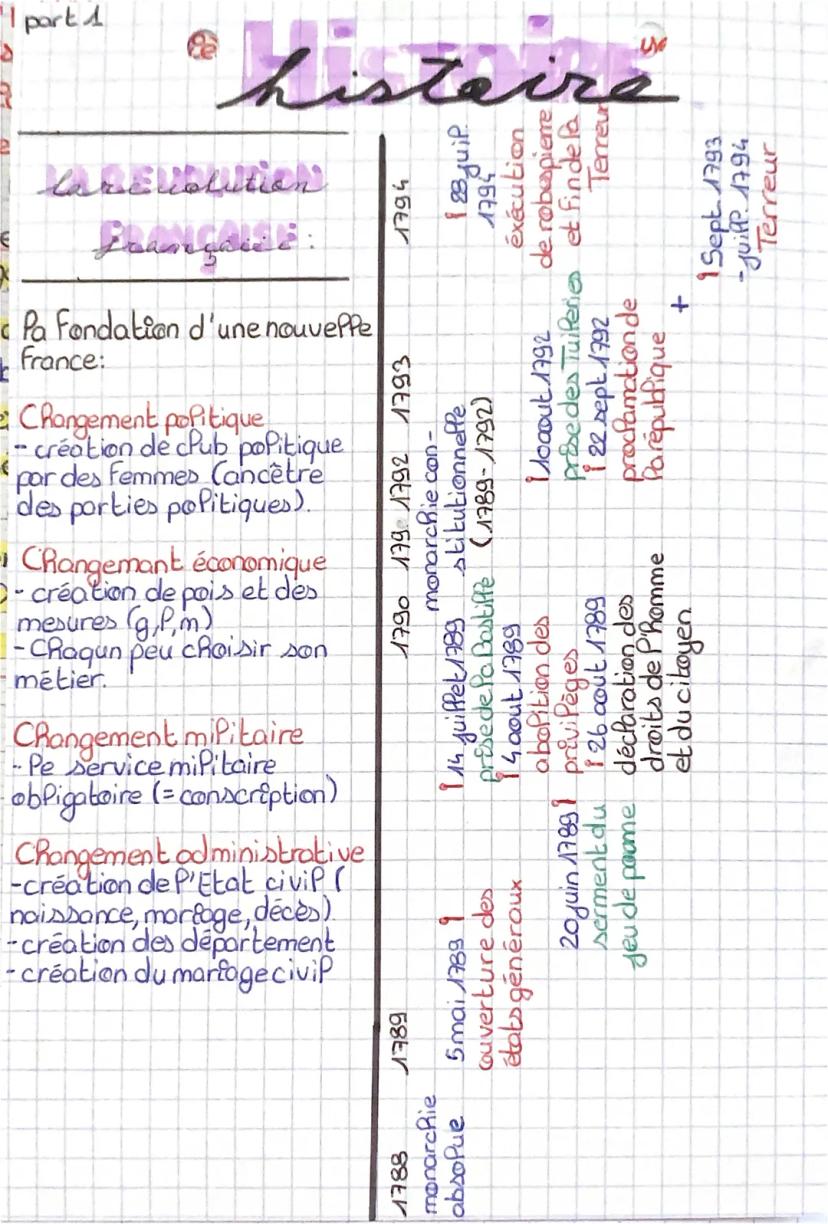 part 1
Histoire
histoire
LA REVOLUTION
la révolution
FRANÇAISE
française :
la Fondation d'une nouvelle
France:
Changement politique
- création de club politique
par des femmes (ancêtre
des parties politiques).
Changemant économique
- création de pois et des
mesures (g, l, m)
- Chaqun peu choisir son
métier.
Changement militaire
- le service militaire
obligatoire (= conscription)
Changement administrative
- création de l'Etat civil (
naissance, mariage, décès)
- création des département
- création du mariage civil
1788
monarchie
absolue
1789
5 mai 1789
ouverture des
états généraux
20 juin 1789
serment du
jeu de paume
14 juillet 1789
prise de la Bastille
4 aout 1789
abolition des
privilèges
26 aout 1789
déclaration des
droits de l'homme
et du citoyen
1790
179
1792
1793
monarchie con-
stitutionnelle
(1789-1792)
10 aout 1792
prise des Tuileries
22 sept 1792
proclamation de
la république
+
1794
28 juil.
1794
éxécution
de robespierre
et fin de la
Terreur
Sept 1793
- juill. 1794
Terreur